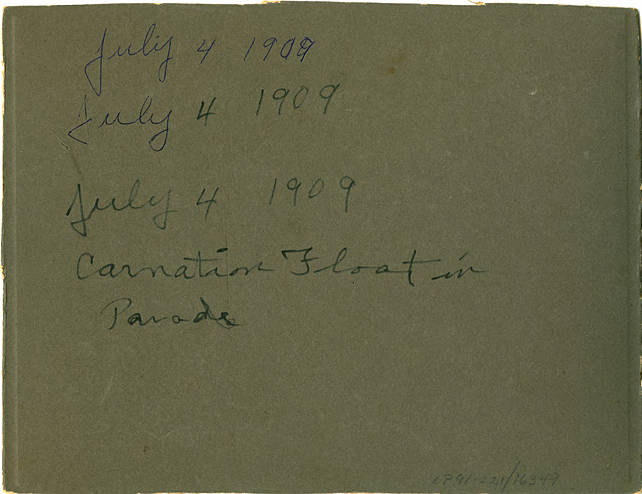 July 4 1909
July 4 1909
July 4 1909
Carnation Float in
Parade
cP91-221/16349